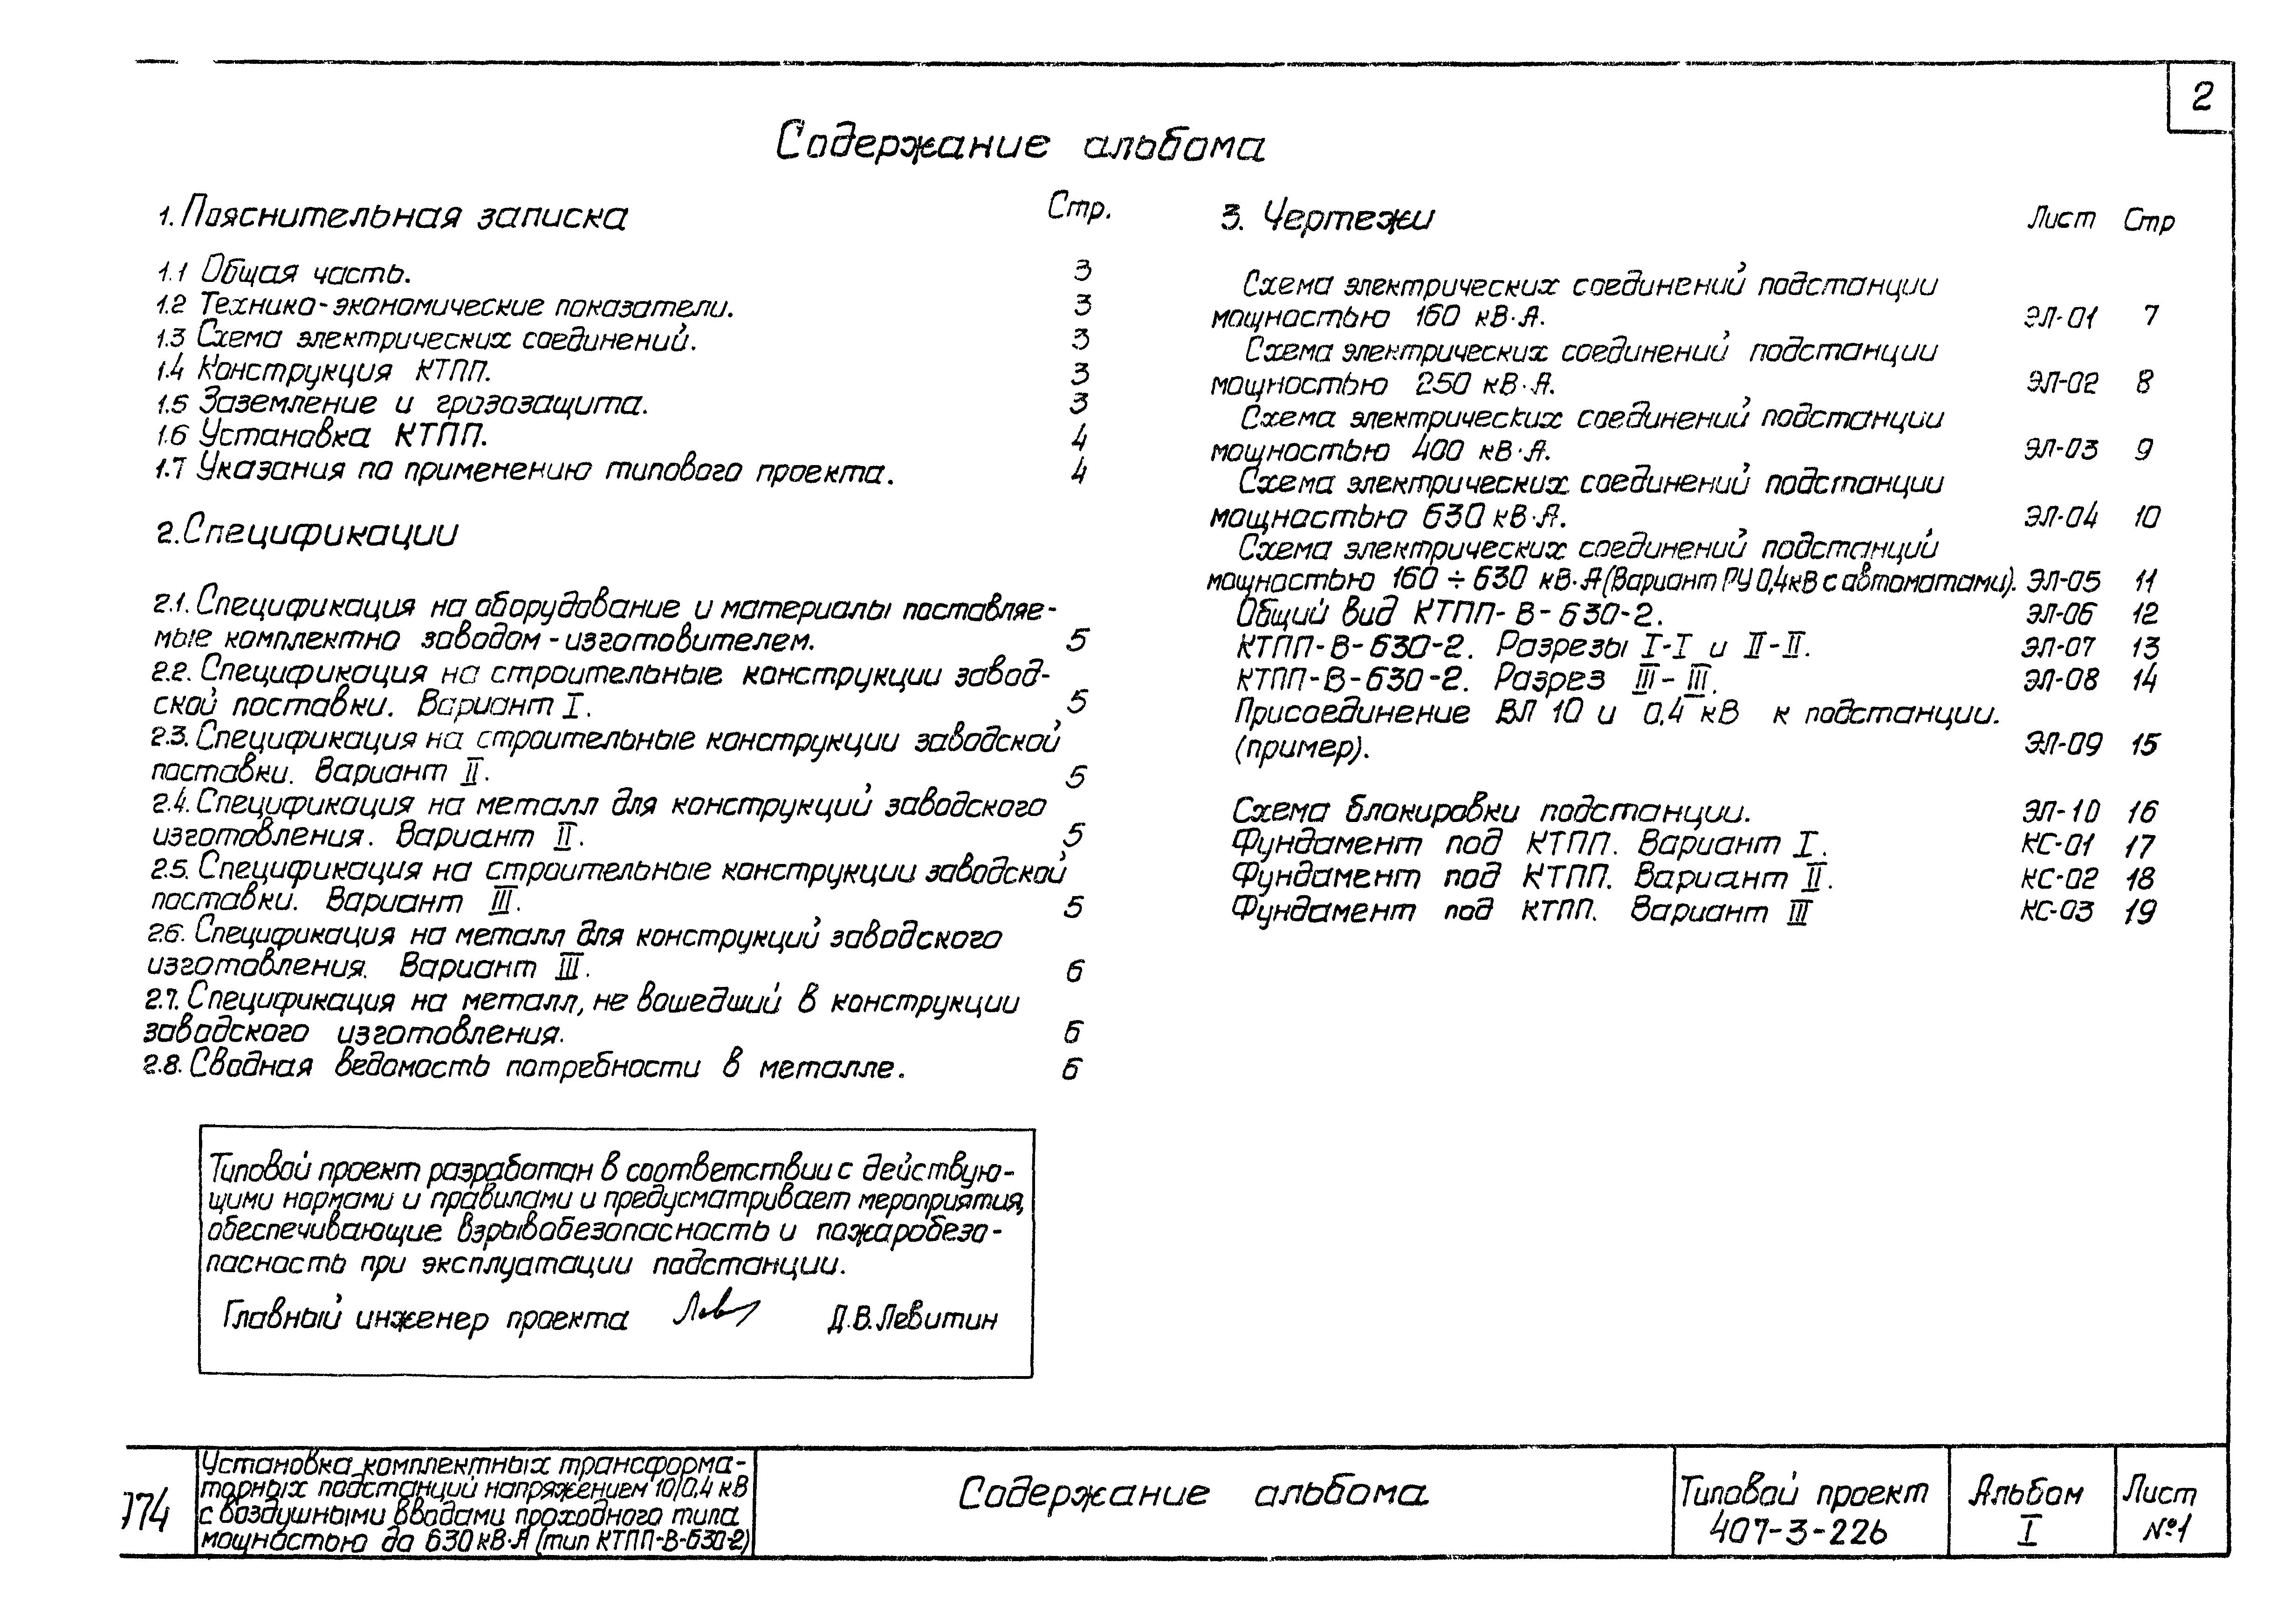 2
Содержание альбома
1. Пояснительная записка Стр.
1.1 Общая часть. 3
1.2 Технико-экономические показатели. 3
1.3 Схема электрических соединений. 3
1.4 Конструкция КТПП. 3
1.5 Заземление и грозозащита. 3
1.6 Установка КТПП. 4
1.7 Указания по применению типового проекта. 4
2. Спецификации
2.1. Спецификация на оборудование и материалы поставляе-
мые комплектно заводом-изготовителем. 5
2.2. Спецификация на строительные конструкции завод-
ской поставки. Вариант I. 5
2.3. Спецификация на строительные конструкции заводской
поставки. Вариант II. 5
2.4. Спецификация на металл для конструкций заводского
изготовления. Вариант II. 5
2.5. Спецификация на строительные конструкции заводской
поставки. Вариант III. 5
2.6. Спецификация на металл для конструкций заводского
изготовления. Вариант III. 6
2.7. Спецификация на металл, не вошедший в конструкции
заводского изготовления. 6
2.8. Сводная ведомость потребности в металле. 6
3. Чертежи Лист Стр
Схема электрических соединений подстанции
мощностью 160 кВ·А. ЭЛ-01 7
Схема электрических соединений подстанции
мощностью 250 кВ·А. ЭЛ-02 8
Схема электрических соединений подстанции
мощностью 400 кВ·А. ЭЛ-03 9
Схема электрических соединений подстанции
мощностью 630 кВ·А. ЭЛ-04 10
Схема электрических соединений подстанций
мощностью 160÷630 кВ·А (Вариант РУ 0,4кВ с автоматами). ЭЛ-05 11
Общий вид КТПП-В-630-2. ЭЛ-06 12
КТПП-В-630-2. Разрезы I-I и II-II. ЭЛ-07 13
КТПП-В-630-2. Разрез III-III. ЭЛ-08 14
Присоединение ВЛ 10 и 0,4 кВ к подстанции.
(пример). ЭЛ-09 15
Схема блокировки подстанции. ЭЛ-10 16
Фундамент под КТПП. Вариант I. КС-01 17
Фундамент под КТПП. Вариант II. КС-02 18
Фундамент под КТПП. Вариант III КС-03 19
Типовой проект разработан в соответствии с действую-
щими нормами и правилами и предусматривает мероприятия,
обеспечивающие взрывобезопасность и пожаробезо-
пасность при эксплуатации подстанции.
Главный инженер проекта Д.В.Левитин
Установка комплектных трансформа-
торных подстанций напряжением 10/0,4 кВ
с воздушными вводами проходного типа
мощностью до 630 кВ·А (тип КТПП-В-630-2)
Содержание альбома
Типовой проект
407-3-226
Альбом
I
Лист
№1